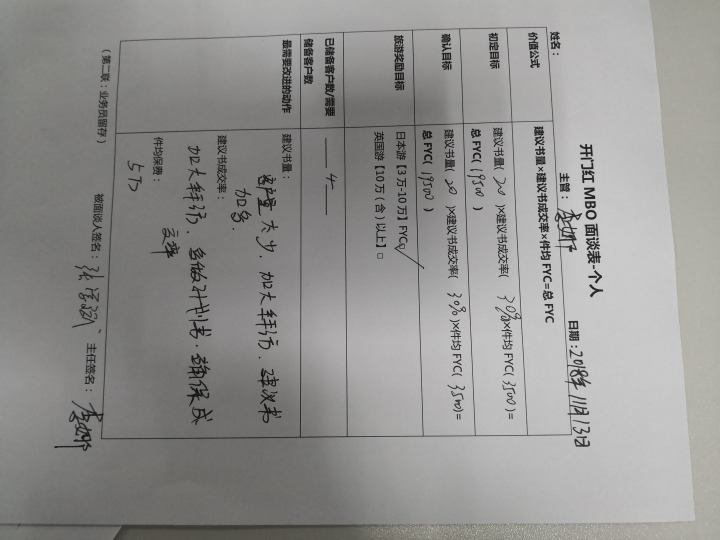 开门红 MBO 面谈表-个人
姓名： 主管： 日期：2018年11月13日
价值公式 建议书量×建议书成交率×件均 FYC=总 FYC
初定目标 建议书量( 20 )×建议书成交率( 30% )×件均 FYC( 3500 )=
总 FYC( 19500 )
确认目标 建议书量( 20 )×建议书成交率( 30% )×件均 FYC( 3500 )=
总 FYC( 19500 )
旅游奖励目标 日本游【3 万-10 万】FYC□✓
英国游【10 万（含）以上】□
已储备客户数/需要
储备客户数 4
最需要改进的动作 建议书量：
客户量太少，加大拜访，建议书
加多。
建议书成交率：
加大拜访，多做计划书，确保成
交率
件均保费：
5万
被面谈人签名： 主任签名：
（第二联：业务员留存）